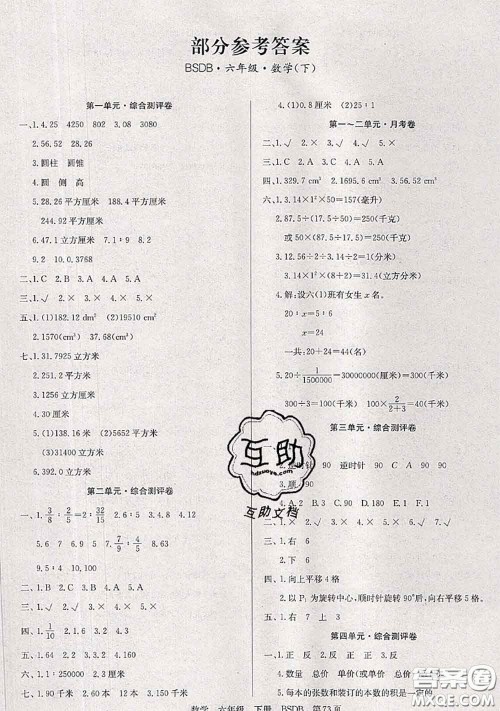 部分参考答案
BSDB·六年级·数学(下)
第一单元·综合测评卷
一、1.4.25 4250 802 3.08 3080
2.56.52 28.26
3.圆柱 圆锥
4.圆 侧 高
5.28.26 平方厘米 188.4 平方厘米
244.92 平方厘米
6.47.1 立方厘米 7.1∶9 8.2
9.2 10.0.3768
二、1.C 2.B 3.A 4.A 5.A
三、1.× 2.× 3.√ 4.× 5.×
五、1.(1)182.12 dm² (2)19510 cm²
2.1570(cm³) 37.68(cm³)
七、1.31.7925 立方米
2.251.2 平方厘米
3.1256 立方厘米
4.30 厘米
5.(1)138.16 米 (2)5652 平方米
(3)31400 立方米
6.392.0 立方米
第二单元·综合测评卷
一、1. 3/8 2/5=2∶32/15 2.6 3.1.6 4.8 4.12
5.1.69 6.9 7. 7/9 4/5
二、1.√ 2.× 3.× 4.√ 5.×
三、1.C 2.A 3.B 4.A 5.C
四、1. 1/10 2.64 3.4
六、1.1∶250000 2.15 3.180
七、1.√ 2.× 3.× 4.√
4.(1)0.8 厘米 (2)25∶1
第一~二单元·月考卷
二、1.√ 2.√ 3.× 4.× 5.×
三、1.C 2.A 3.A 4.B 5.C
四、1.329.7 cm³ 2.1695.6 cm³
六、1.3.14×1²×50=157(毫升)
2.87.5÷(7÷20)=250(千克)
或 50×(87.5÷17.5)=250(千克)
3.12.56÷2÷3.14÷2=1(分米)
3.14×1²×(8+2)=31.4(立方分米)
4.解:设六(1)班有女生 x 名。
20∶x=5∶6
x=24
一共:20+24=44(名)
300÷3=100(千米)
第三单元·综合测评卷
逆时针 90 90 90
3.顺
二、1.A 2.C 3.90 4.D 5.180
三、1.√ 2.× 3.× 4.√ 5.×
五、1.右 6
2.左 6
七、1.向上平移 4 格
2.以 P 为旋转中心，顺时针旋转 90°后，向右平移
五、1.右 7 上 3
第四单元·综合测评卷
一、1.正 反 2.正 3.正 反 反
4.数量 总价 单价(或总价 数量 单价)
5.每本的张数和装订的本数的积是一定的
数学 六年级 下册 BSDB 第73页
互助
hdzuoye.com
互助文档
答案圈
MXQE.COM